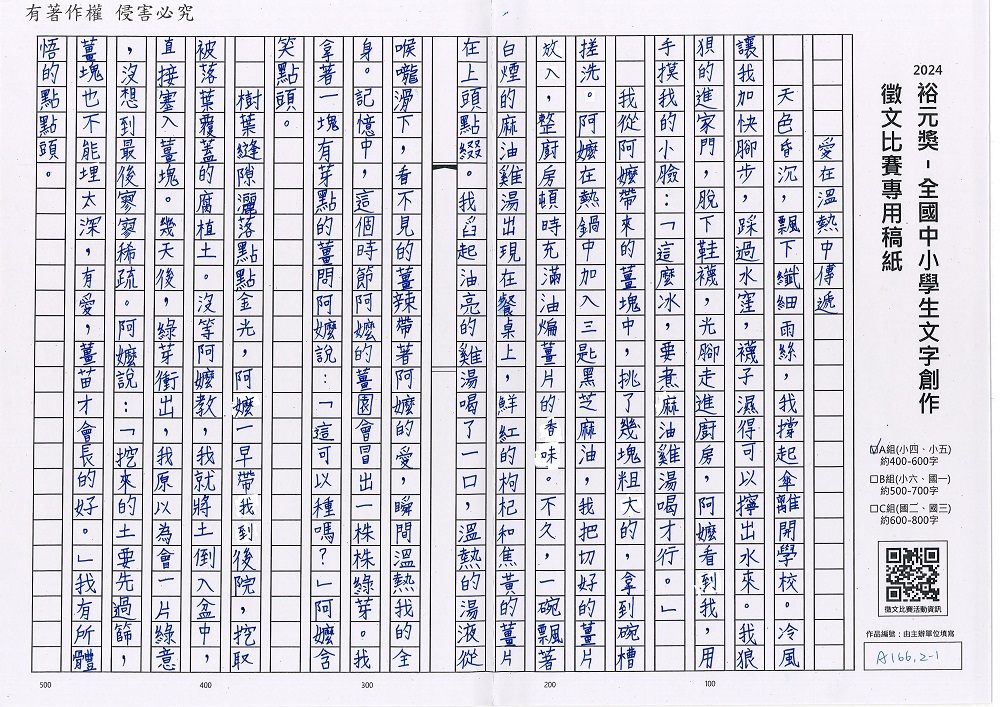 有著作權 侵害必究
2024
裕元獎-全國中小學生文字創作
徵文比賽專用稿紙
☑A組(小四、小五)
約400-600字
□B組(小六、國一)
約500-700字
□C組(國二、國三)
約600-800字
徵文比賽活動資訊
作品編號：由主辦單位填寫
A166,2-1
愛在溫熱中傳遞
天色昏沉，飄下纖細雨絲，我撐起傘離開學校。冷風
讓我加快腳步，踩過水窪，襪子濕得可以擰出水來。我狼
狽的進家門，脫下鞋襪，光腳走進廚房，阿嬤看到我，用
手摸我的小臉：「這麼冰，要煮麻油雞湯喝才行。」
我從阿嬤帶來的薑塊中，挑了幾塊粗大的，拿到碗槽
搓洗。阿嬤在熱鍋中加入三匙黑芝麻油，我把切好的薑片
放入，整廚房頓時充滿油煸薑片的香味。不久，一碗飄著
白煙的麻油雞湯出現在餐桌上，鮮紅的枸杞和焦黃的薑片
在上頭點綴。我舀起油亮的雞湯喝了一口，溫熱的湯液從
喉嚨滑下，看不見的薑辣帶著阿嬤的愛，瞬間溫熱我的全
身。記憶中，這個時節阿嬤的薑園會冒出一株株綠芽。我
拿著一塊有芽點的薑問阿嬤說：「這可以種嗎？」阿嬤含
笑點頭。
樹葉縫隙灑落點點金光，阿嬤一早帶我到後院，挖取
被落葉覆蓋的腐植土。沒等阿嬤教，我就將土倒入盆中，
直接塞入薑塊。幾天後，綠芽衝出，我原以為會一片綠意
，沒想到最後寥寥稀疏。阿嬤說：「挖來的土要先過篩，
薑塊也不能埋太深，有愛，薑苗才會長的好。」我有所體
悟的點點頭。
100
200
300
400
500